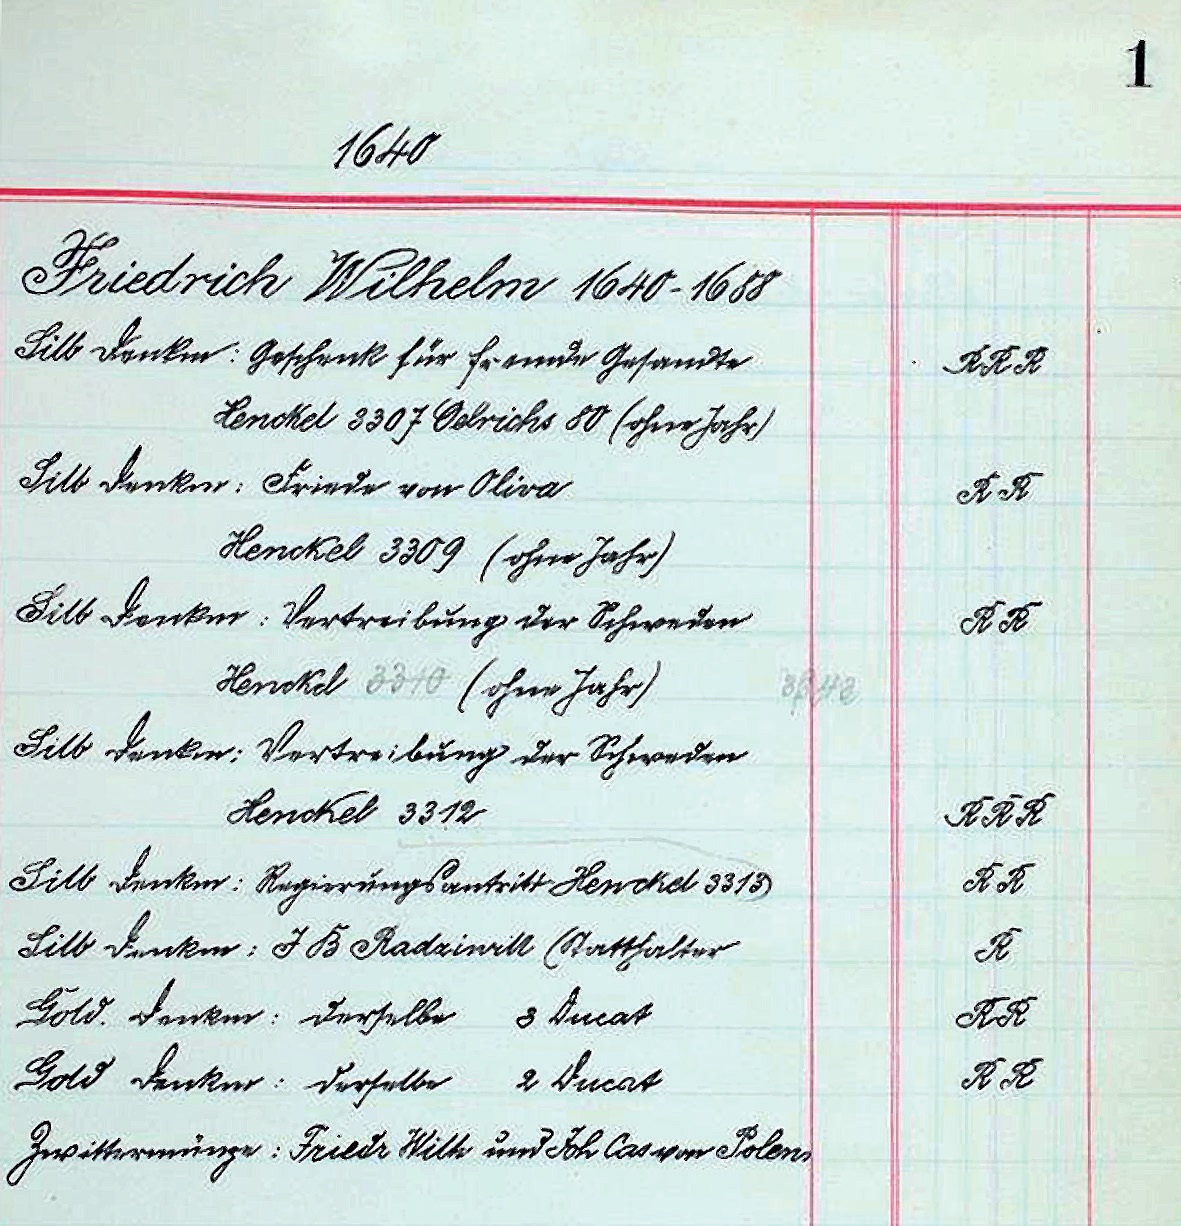 1
1640
Friedrich Wilhelm 1640-1688
Silb Denkm: Geschenk für fremde Gesandte RRR
Henckel 3307 Oelrichs 80 (ohne Jahr)
Silb Denkm: Friede von Oliva RR
Henckel 3309 (ohne Jahr)
Silb Denkm: Vertreibung der Schweden RR
Henckel 3310 (ohne Jahr)
Silb Denkm: Vertreibung der Schweden
Henckel 3312 RRR
Silb Denkm: Regierungsantritt Henckel 3313) RR
Silb Denkm: J B Radziwill (Statthalter R
Gold. Denkm: derselbe 3 Ducat RR
Gold Denkm: derselbe 2 Ducat RR
Zwittermünze: Friedr Wilh und Joh Cas von Polen